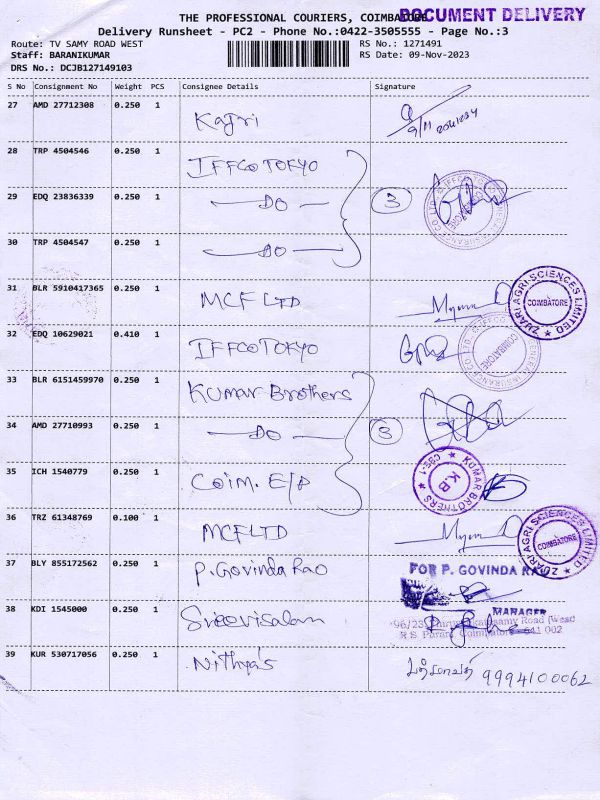 THE PROFESSIONAL COURIERS, COIMBATORE
DOCUMENT DELIVERY
Delivery Runsheet - PC2 - Phone No.:0422-3505555 - Page No.:3
Route: TV SAMY ROAD WEST
RS No.: 1271491
Staff: BARANIKUMAR
RS Date: 09-Nov-2023
DRS No.: DCJB127149103
S No Consignment No Weight PCS Consignee Details Signature
27 AMD 27712308 0.250 1 Kajri 9/11
28 TRP 4504546 0.250 1 IFFCO TOKYO
29 EDQ 23836339 0.250 1 — DO — 3
30 TRP 4504547 0.250 1 — DO —
31 BLR 5910417365 0.250 1 MCF LTD
ZUARI AGRI SCIENCES LIMITED COIMBATORE
32 EDQ 10629021 0.410 1 IFFCO TOKYO
COIMBATORE
33 BLR 6151459970 0.250 1 Kumar Brothers
34 AMD 27710993 0.250 1 — DO — 3
35 ICH 1540779 0.250 1 Coim. E/P
KUMAR BROTHERS CBE-1 K.B
36 TRZ 61348769 0.100 1 MCF LTD
ZUARI AGRI SCIENCES LIMITED COIMBATORE
37 BLY 855172562 0.250 1 P. Govinda Rao
FOR P. GOVINDA RAO
MANAGER
38 KDI 1545000 0.250 1 Sreevisalam
R S Puram, Coimbatore - 641 002
39 KUR 530717056 0.250 1 Nithya's 9994100062